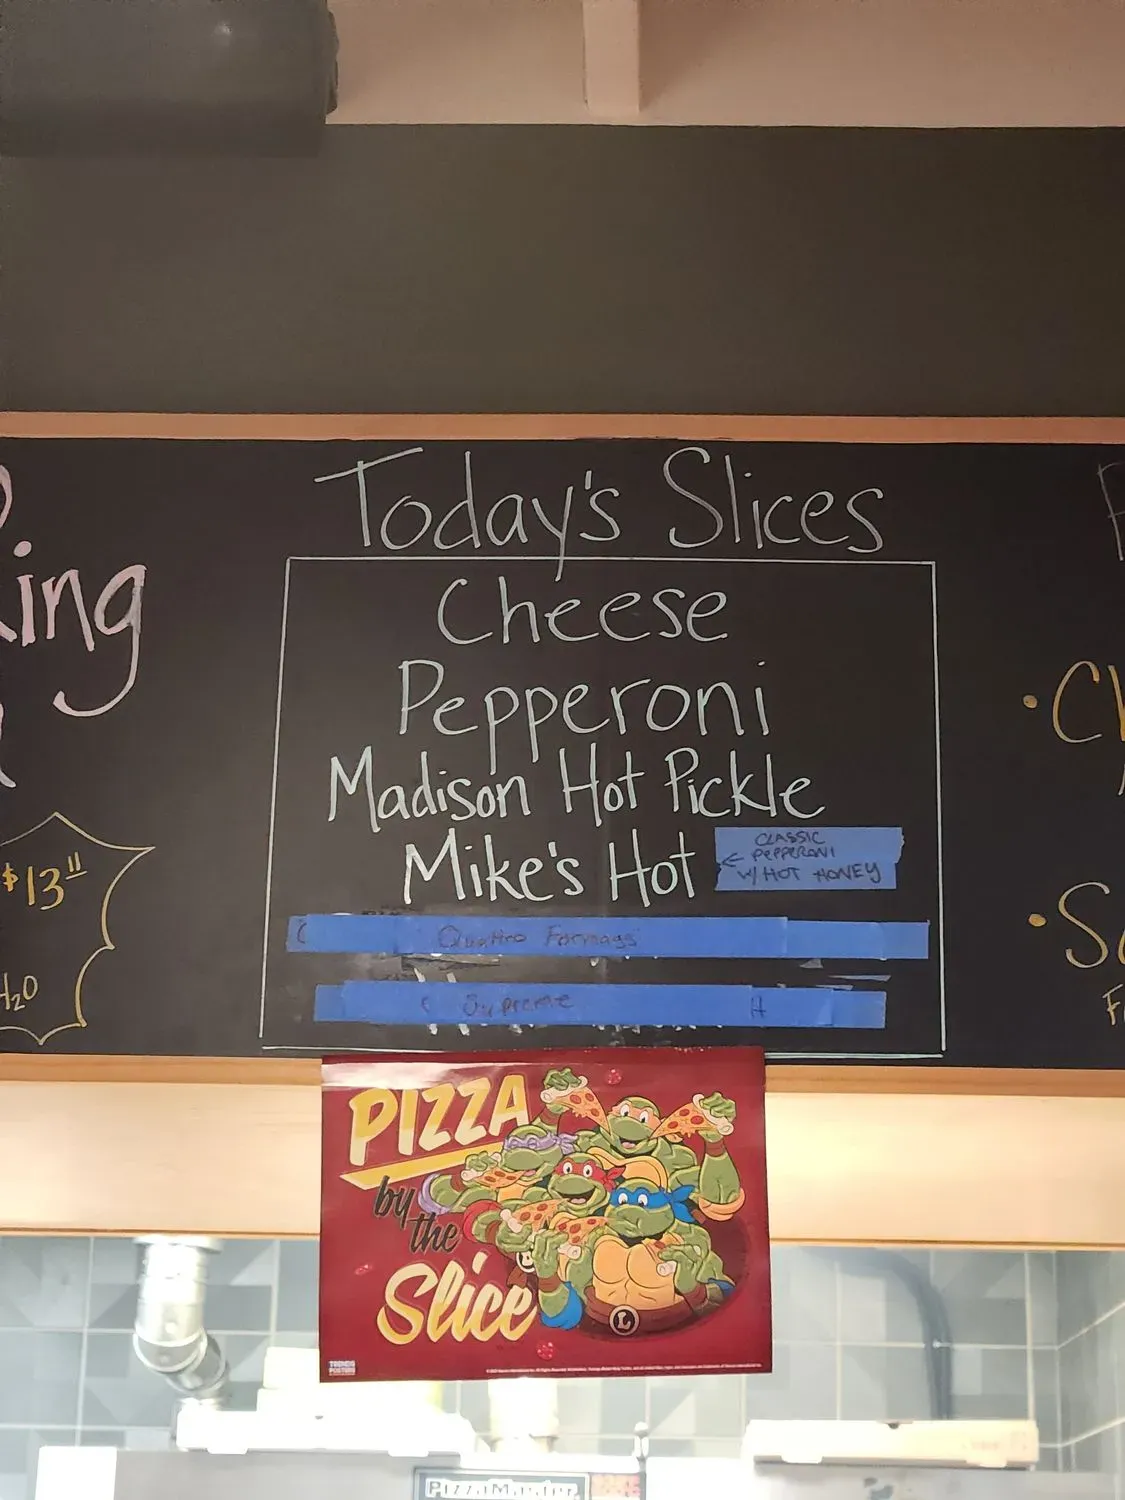 Today's Slices
Cheese
Pepperoni
Madison Hot Pickle
Mike's Hot
← CLASSIC
PEPPERONI
W/ HOT HONEY
Quattro Formags
Supreme
H
ing
$13 11
H2O
PIZZA
by
the
Slice
L
TRENDS
POSTERS
PizzaMaster